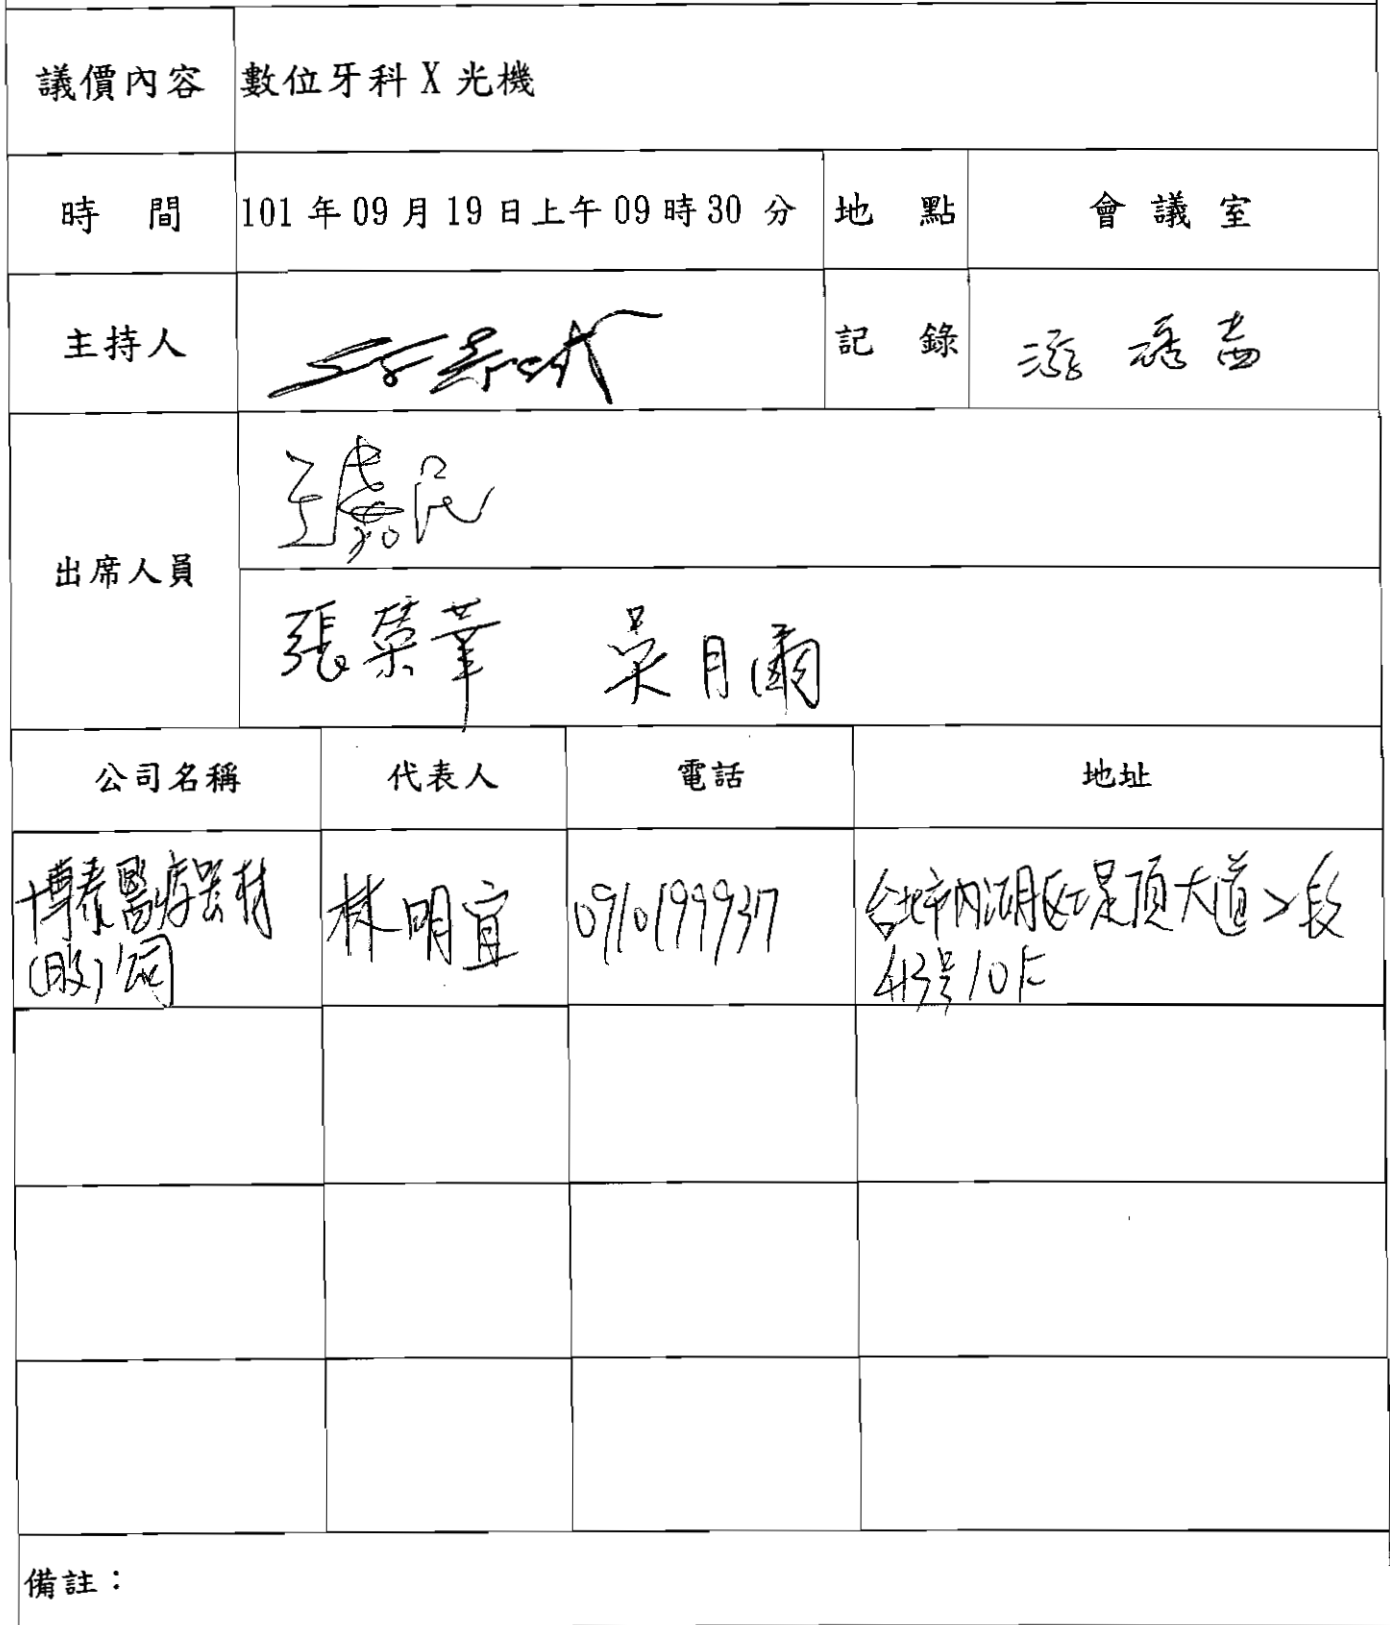 議價內容 數位牙科X光機
時 間 101年09月19日上午09時30分 地 點 會議室
主持人 記 錄 游
出席人員
王嘉民
張榮華 吳月
公司名稱 代表人 電話 地址
博泰醫療器材 林明宜 0910199937 台北市內湖區堤頂大道2段
(股)公司 413號10F
備註：